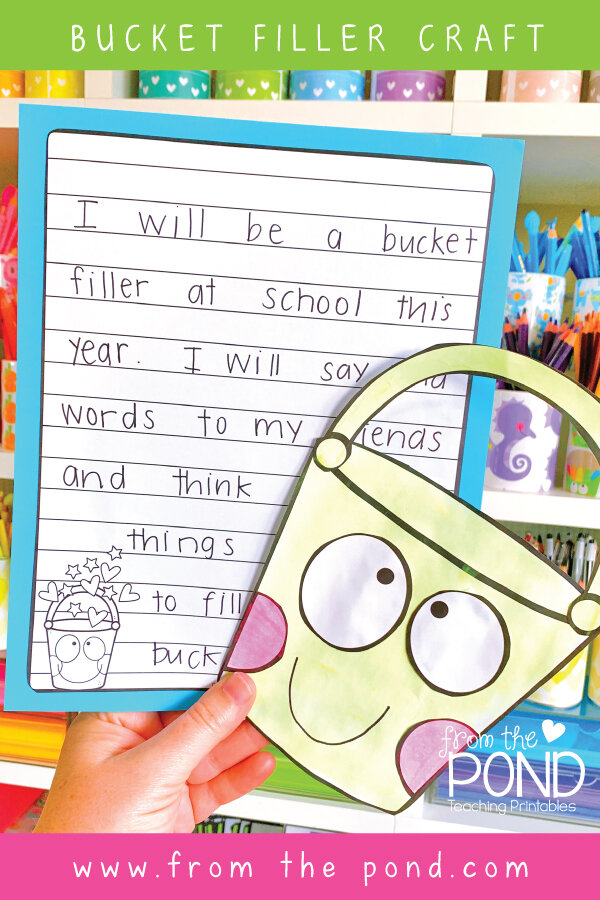 BUCKET FILLER CRAFT
I will be a bucket
filler at school this
year. I will say
words to my
and think
things
to fill
from the
POND
Teaching Printables
www.from the pond.com